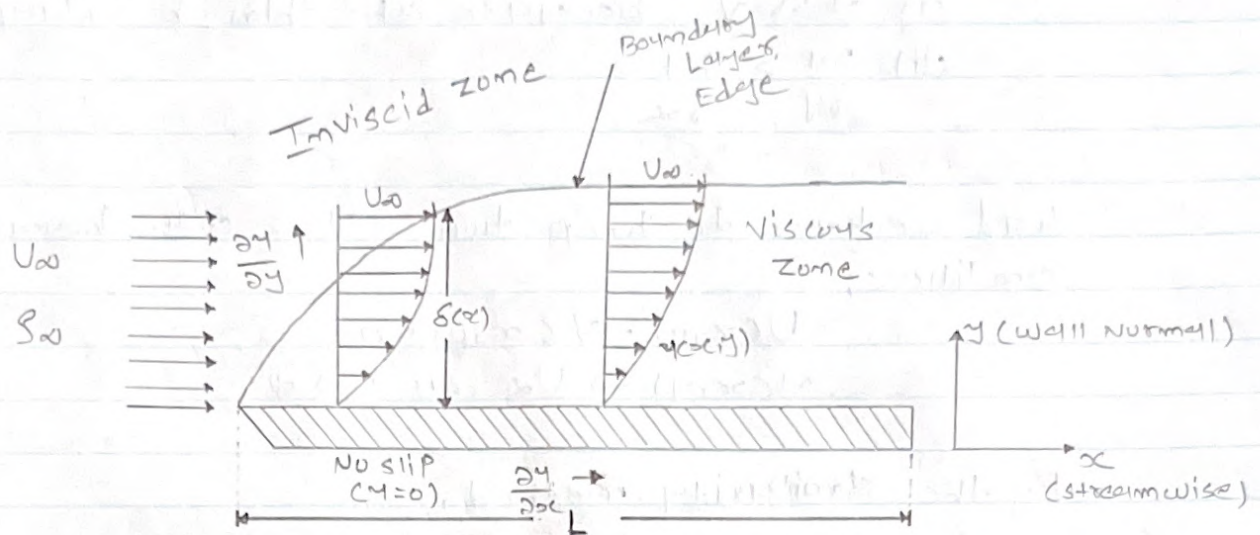 Boundary
Layer
Edge
Inviscid zone
U∞
U∞
U∞
ρ∞
∂u
∂y
δ(x)
u(x,y)
Viscous
zone
y (Wall Normal)
x
(streamwise)
No slip
(u=0)
∂u
∂x
L